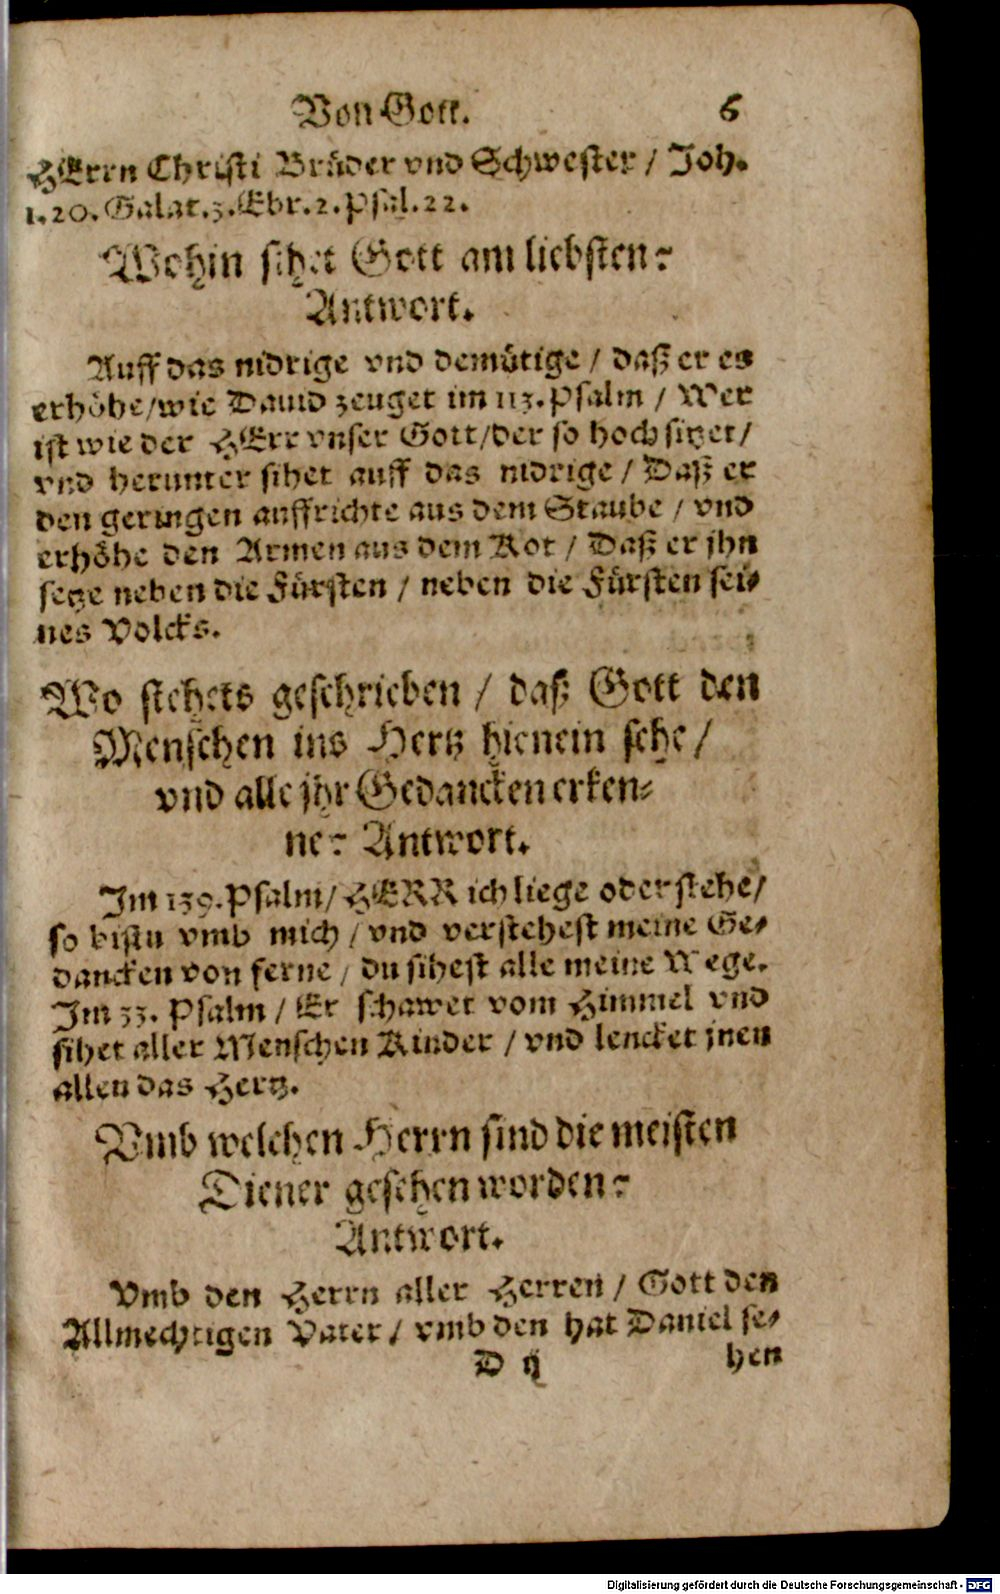 Von Gott. 6
HErrn Christi Brüder vnd Schwester / Joh.
1.20. Galat.3. Ebr.2. Psal.22.
Wohin sihet Gott am liebsten?
Antwort.
Auff das nidrige vnd demütige / daß er es
erhöhe/wie Dauid zeuget im 113. Psalm / Wer
ist wie der HErr vnser Gott/der so hoch sitzet/
vnd herunter sihet auff das nidrige / Daß er
den geringen auffrichte aus dem Staube / vnd
erhöhe den Armen aus dem Kot / Daß er jhn
setze neben die Fürsten / neben die Fürsten sei-
nes Volcks.
Wo stehets geschrieben / daß Gott den
Menschen ins Hertz hienein sehe /
vnd alle jhr Gedancken erken-
ne? Antwort.
Im 139. Psalm/ HERR ich liege oder stehe/
so bistu vmb mich / vnd verstehest meine Ge-
dancken von ferne / du sihest alle meine Wege.
Im 33. Psalm / Er schawet vom Himmel vnd
sihet aller Menschen Kinder / vnd lencket jnen
allen das Hertz.
Vmb welchen Herrn sind die meisten
Diener gesehen worden?
Antwort.
Vmb den Herrn aller Herren / Gott den
Allmechtigen Vater / vmb den hat Daniel se-
D ij hen
Digitalisierung gefördert durch die Deutsche Forschungsgemeinschaft - DFG